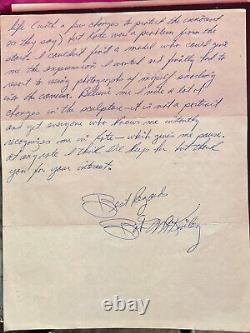 life (with a few changes to protect the innocent
as they say) but Kate was a problem from the
start. I couldn't find a model who could give
me the expression I wanted and finally had to
resort to using photographs of myself snarling
into the camera. Believe me I made a lot of
changes in the sculpture — it is not a portrait
and yet everyone who knows me instantly
recognizes me in Kate — which gives me pause.
At any rate I think I'll keep her but thank
you for your interest.
Best Regards
Pat
© ebay.com